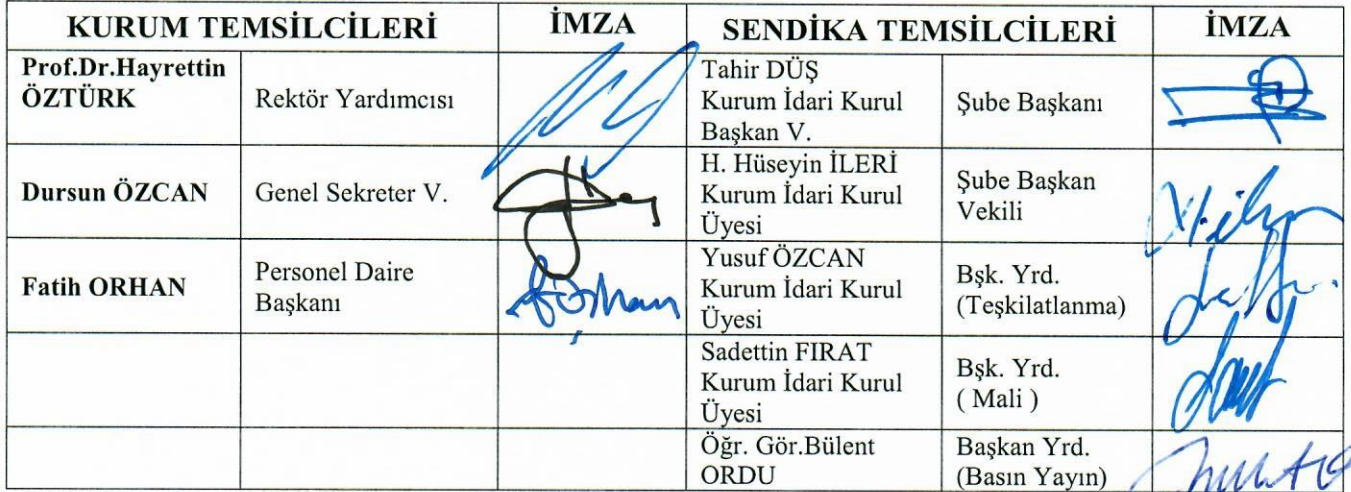 KURUM TEMSİLCİLERİ İMZA SENDİKA TEMSİLCİLERİ İMZA
Prof.Dr.Hayrettin
ÖZTÜRK
Rektör Yardımcısı
Tahir DÜŞ
Kurum İdari Kurul
Başkan V.
Şube Başkanı
Dursun ÖZCAN
Genel Sekreter V.
H. Hüseyin İLERİ
Kurum İdari Kurul
Üyesi
Şube Başkan
Vekili
Fatih ORHAN
Personel Daire
Başkanı
Yusuf ÖZCAN
Kurum İdari Kurul
Üyesi
Bşk. Yrd.
(Teşkilatlanma)
Sadettin FIRAT
Kurum İdari Kurul
Üyesi
Bşk. Yrd.
( Mali )
Öğr. Gör.Bülent
ORDU
Başkan Yrd.
(Basın Yayın)